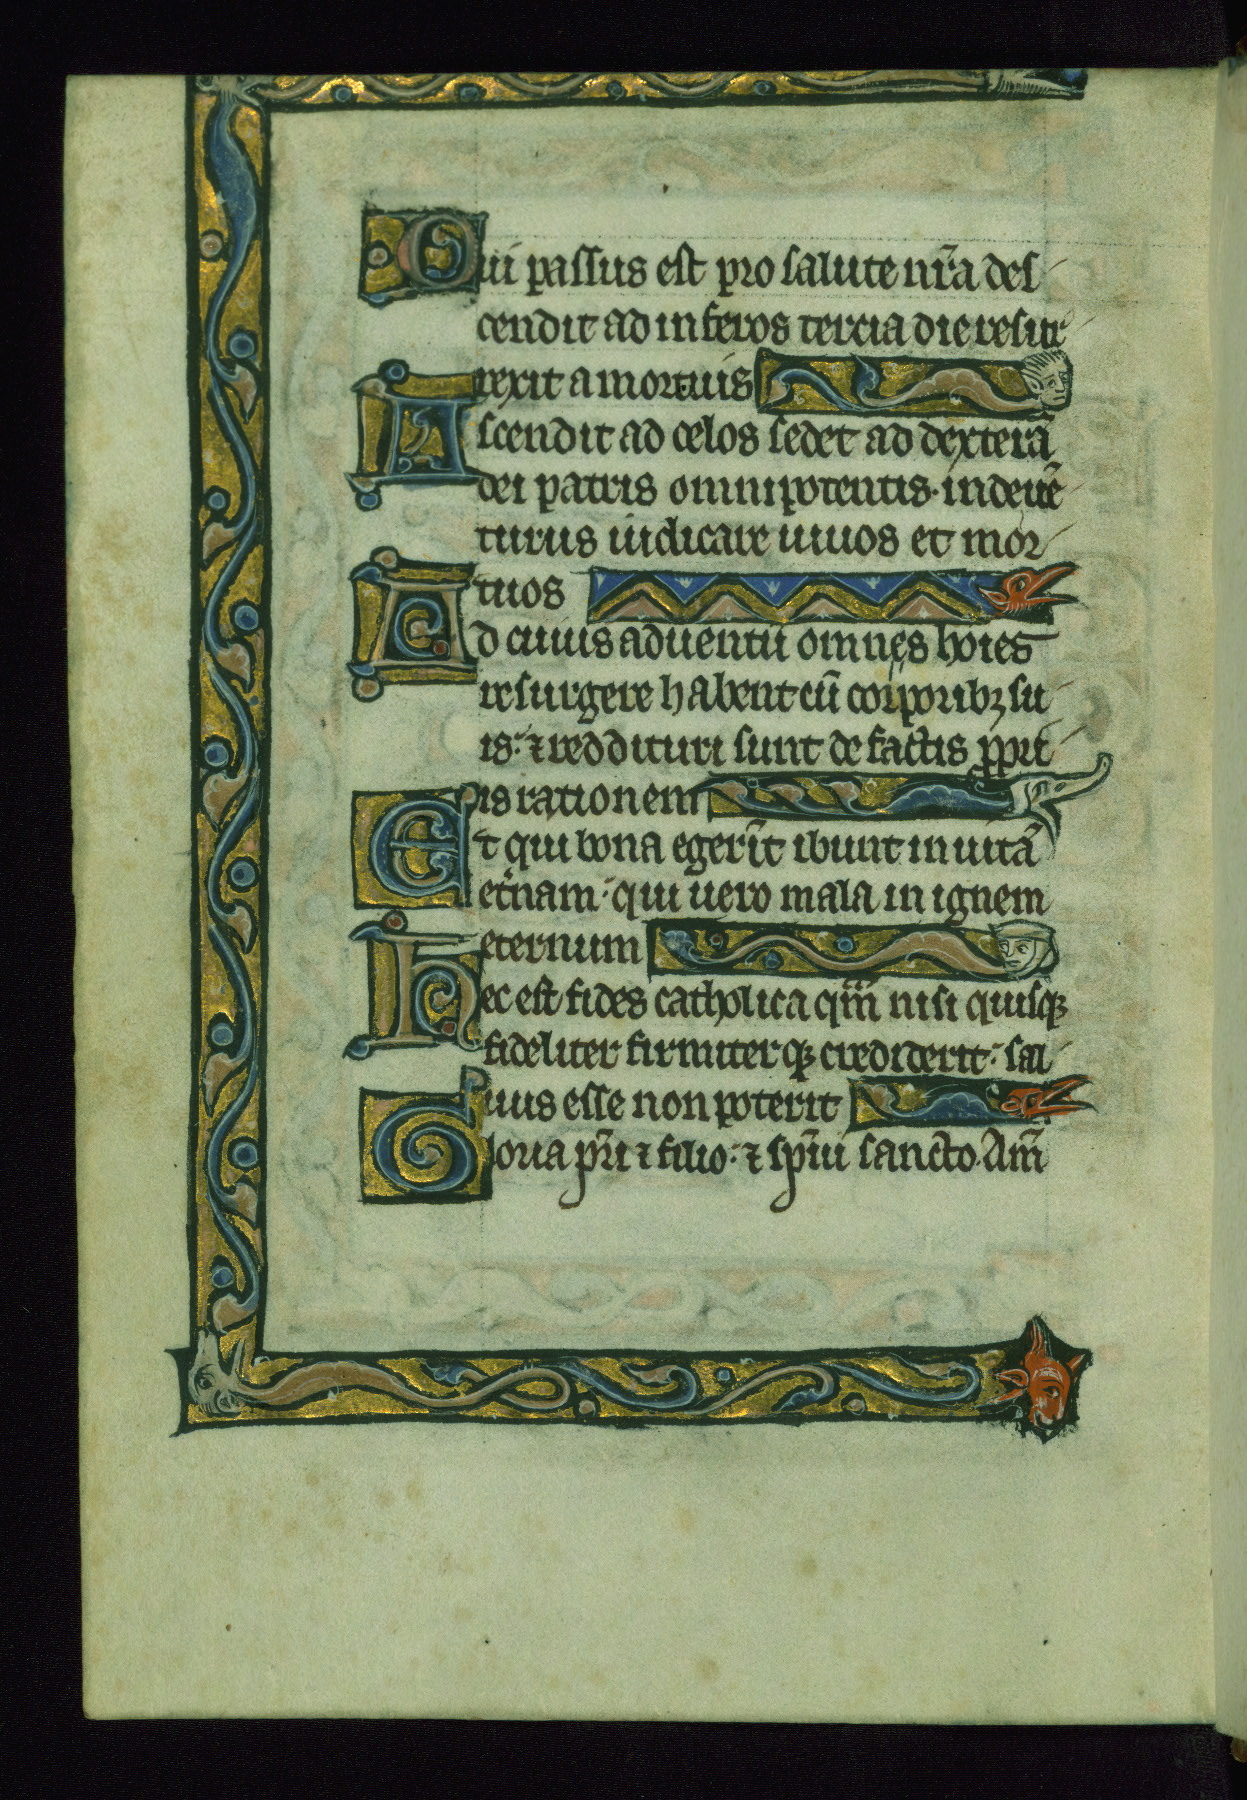 Qui passus est pro salute nr̄a des
cendit ad inferos tercia die resur
rexit a mortuis
Ascendit ad celos sedet ad dexterā
dei patris omnipotentis· inde uē
turus iudicare uiuos et mor
tuos
Ad cuius aduentū omnes hoīes
resurgere habent cū corporibꝫ su
is· ⁊ reddituri sunt de factis ꝓpri
is rationem
Et qui bona egerūt ibunt in uitā
et̾nam· qui uero mala in ignem
eternum
Hec est fides catholica qm̄ nisi quisqꝫ
fideliter firmiterqꝫ crediderit· sal
uus esse non poterit
Gloria pr̄i ⁊ filio· ⁊ sp̄iui sancto. Am̄